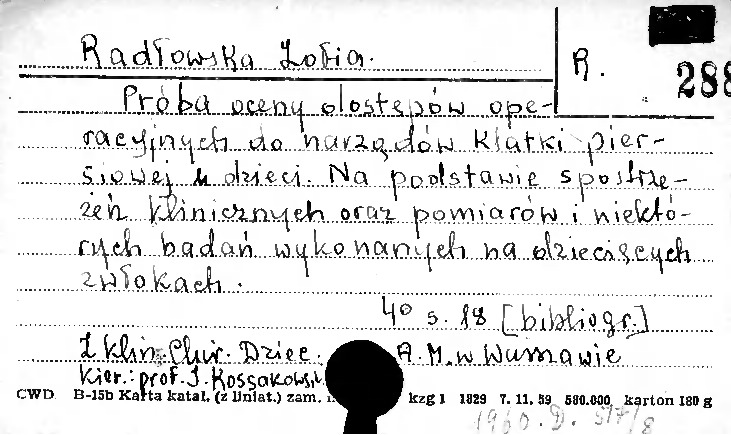 Radłowska Zofia.
R.
288
Próba oceny dostępów ope-
racyjnych do narządów klatki pier-
siowej u dzieci. Na podstawie spostrze-
żeń klinicznych oraz pomiarów i niektó-
rych badań wykonanych na dziecięcych
zwłokach.
4° s. 88 [bibliogr.]
Z Klin. Chir. Dziec. A.M. w Warszawie
Kier.: prof. J. Kossakowski
CWD B-15b Karta katal. (z liniat.) zam. kzg 1 1829 7. 11. 59 580.000 karton 180 g
1960. D. 517/8